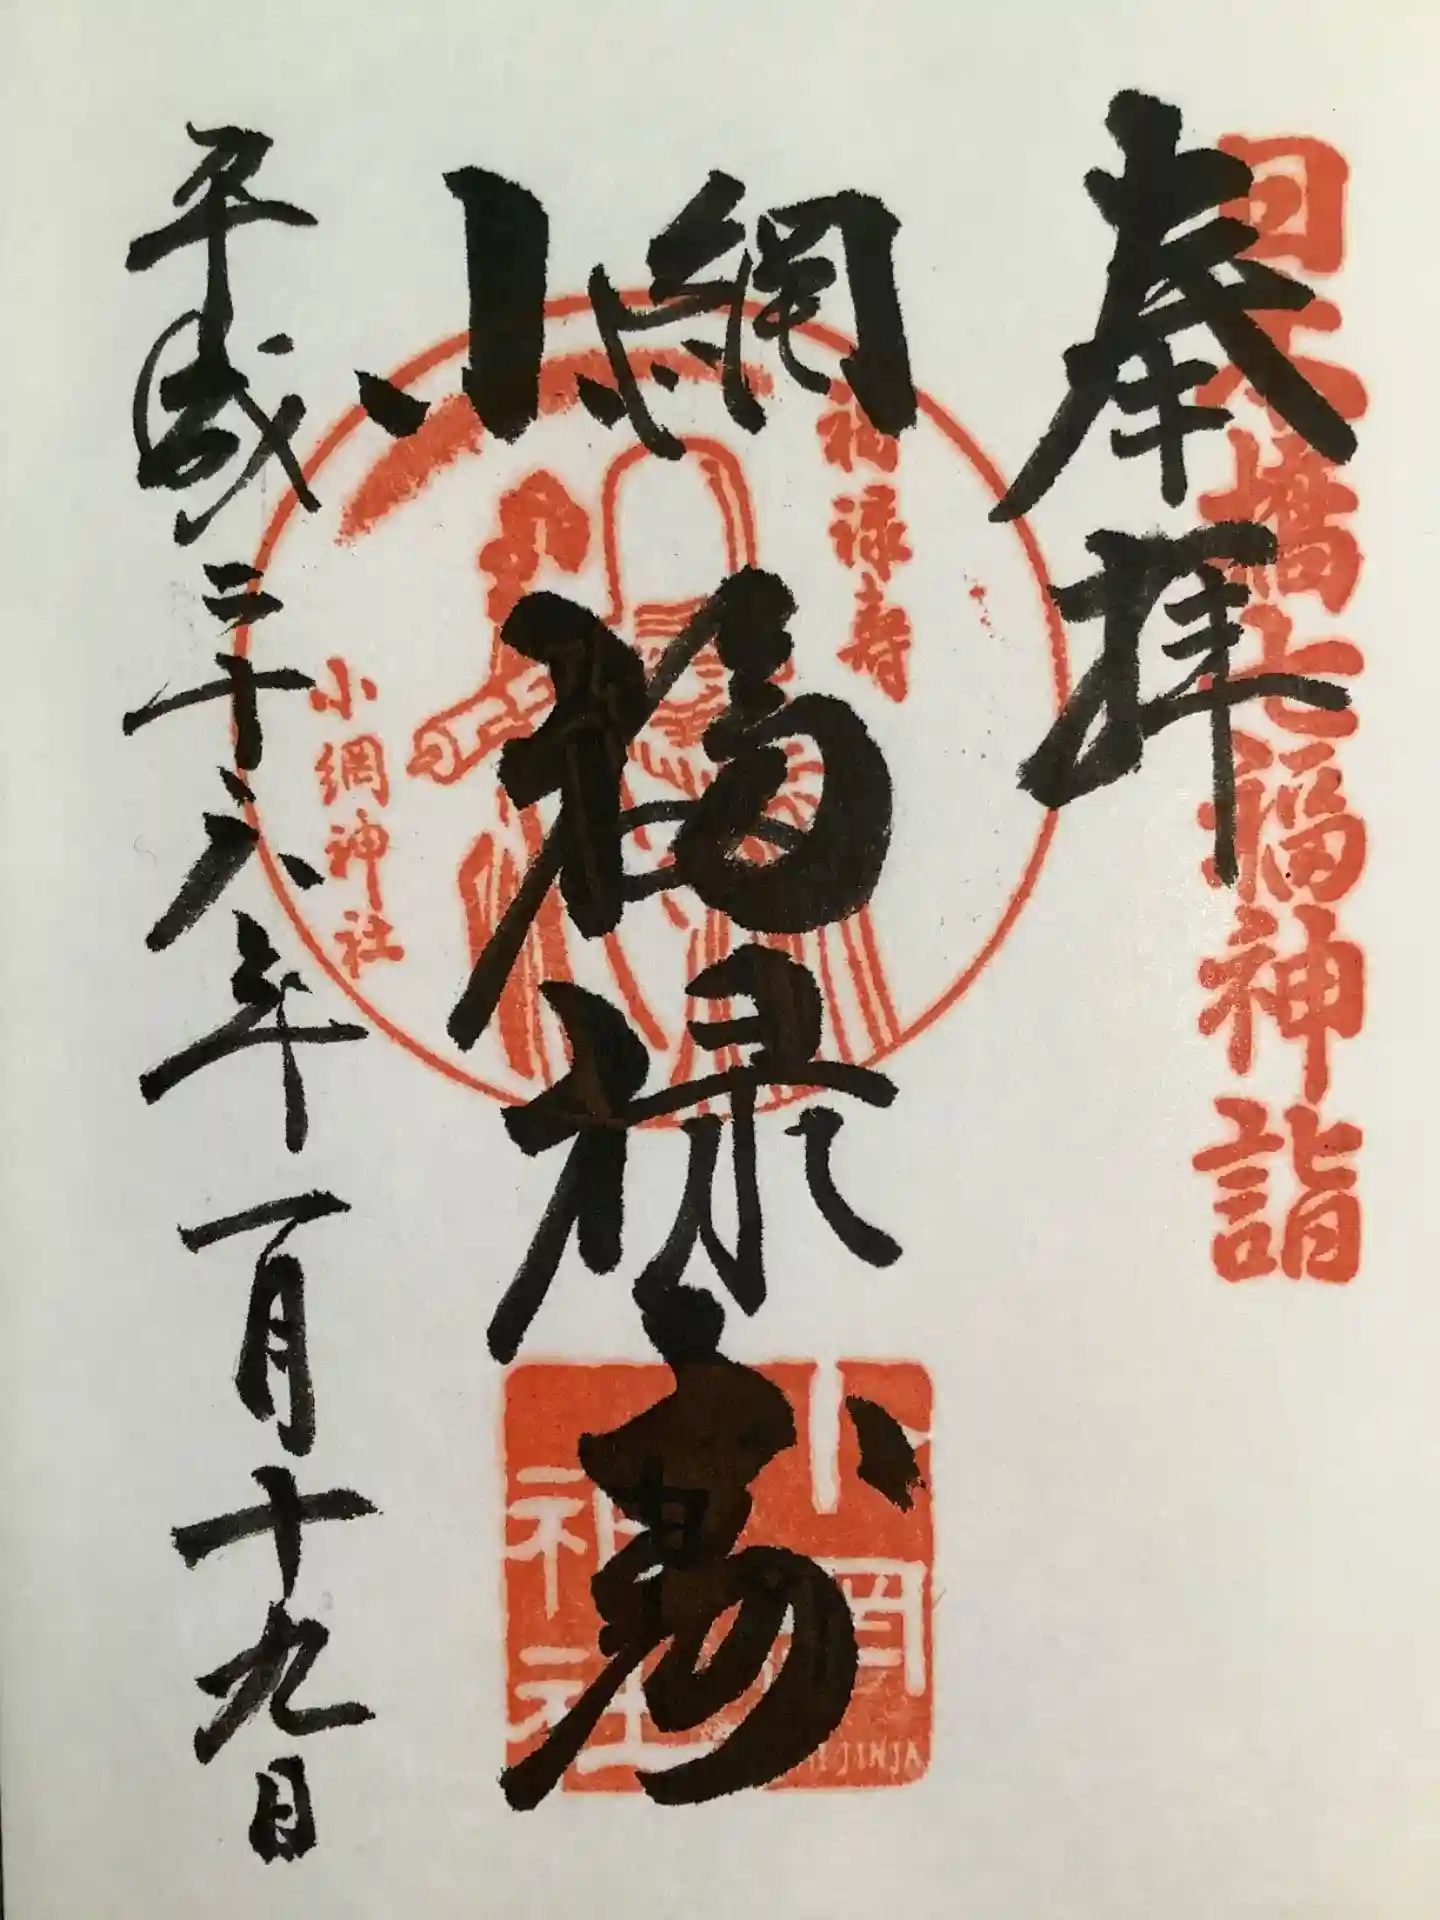 奉拝
日本橋七福神詣
小網
福禄寿
福禄寿
小網神社
小網
神社
JINJA
平成二十八年一月十九日